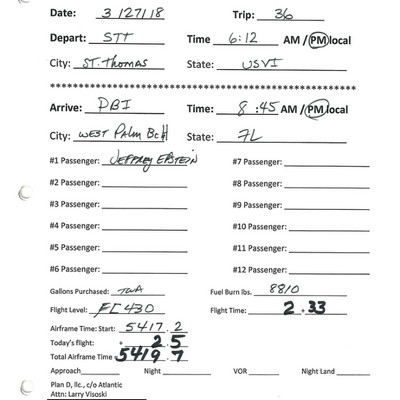 Date: 3/27/18 Trip: 36
Depart: STT Time 6:12 AM / PM local
City: ST. Thomas State: USVI
************************************************
Arrive: PBI Time: 8:45 AM / PM local
City: WEST Palm BcH State: FL
#1 Passenger: JEFFREY EPSTEIN #7 Passenger:
#2 Passenger: #8 Passenger:
#3 Passenger: #9 Passenger:
#4 Passenger: #10 Passenger:
#5 Passenger: #11 Passenger:
#6 Passenger: #12 Passenger:
Gallons Purchased: TWA Fuel Burn lbs. 8810
Flight Level: FL 430 Flight Time: 2 + 33
Airframe Time: Start: 5417.2
Today's flight: + 2.5
Total Airframe Time = 5419.7
Approach Night VOR Night Land
Plan D, llc., c/o Atlantic
Attn: Larry Visoski